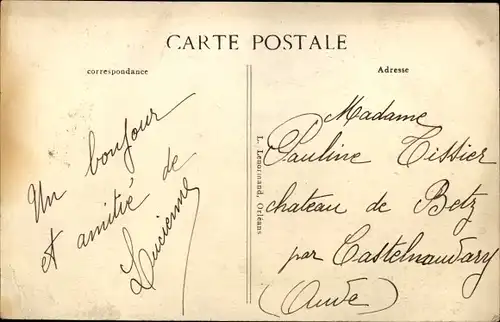 CARTE POSTALE
correspondance
Adresse
Un bonjour
et amitié de
Lucienne
L. Lenormand, Orléans
Madame
Pauline Tissier
chateau de Betz
par Castelnaudary
(Aude)